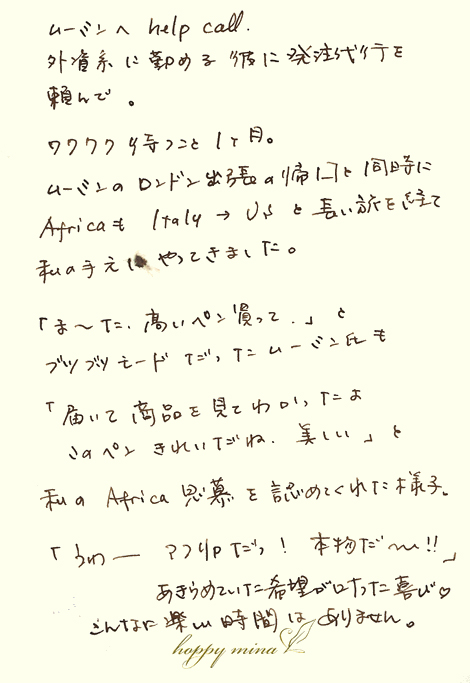 ムーミンへ help call.
外資系に勤める彼に発注代行を
頼んで。
ワクワク待つこと1ヶ月。
ムーミンのロンドン出張の帰国と同時に
Africaも Italy → US と長い旅を経て
私の手元にやってきました。
「ま〜た、高いペン買って.」と
ブツブツモードだったムーミン氏も
「届いて商品を見てわかったよ
このペンきれいだね.美しい」と
私の Africa 思慕を認めてくれた様子。
「うわー アフリカだっ! 本物だ〜!!」
あきらめていた希望が叶った喜び♡
こんなに楽しい時間はありません。
hoppy mina